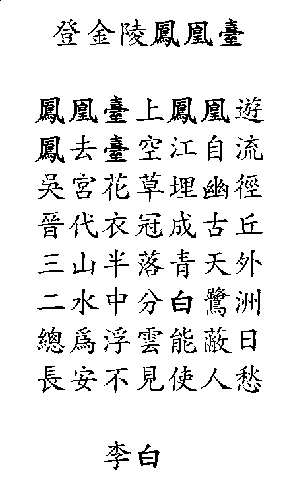 登金陵鳳凰臺
鳳凰臺上鳳凰遊
鳳去臺空江自流
吳宮花草埋幽徑
晉代衣冠成古丘
三山半落青天外
二水中分白鷺洲
總爲浮雲能蔽日
長安不見使人愁
李白